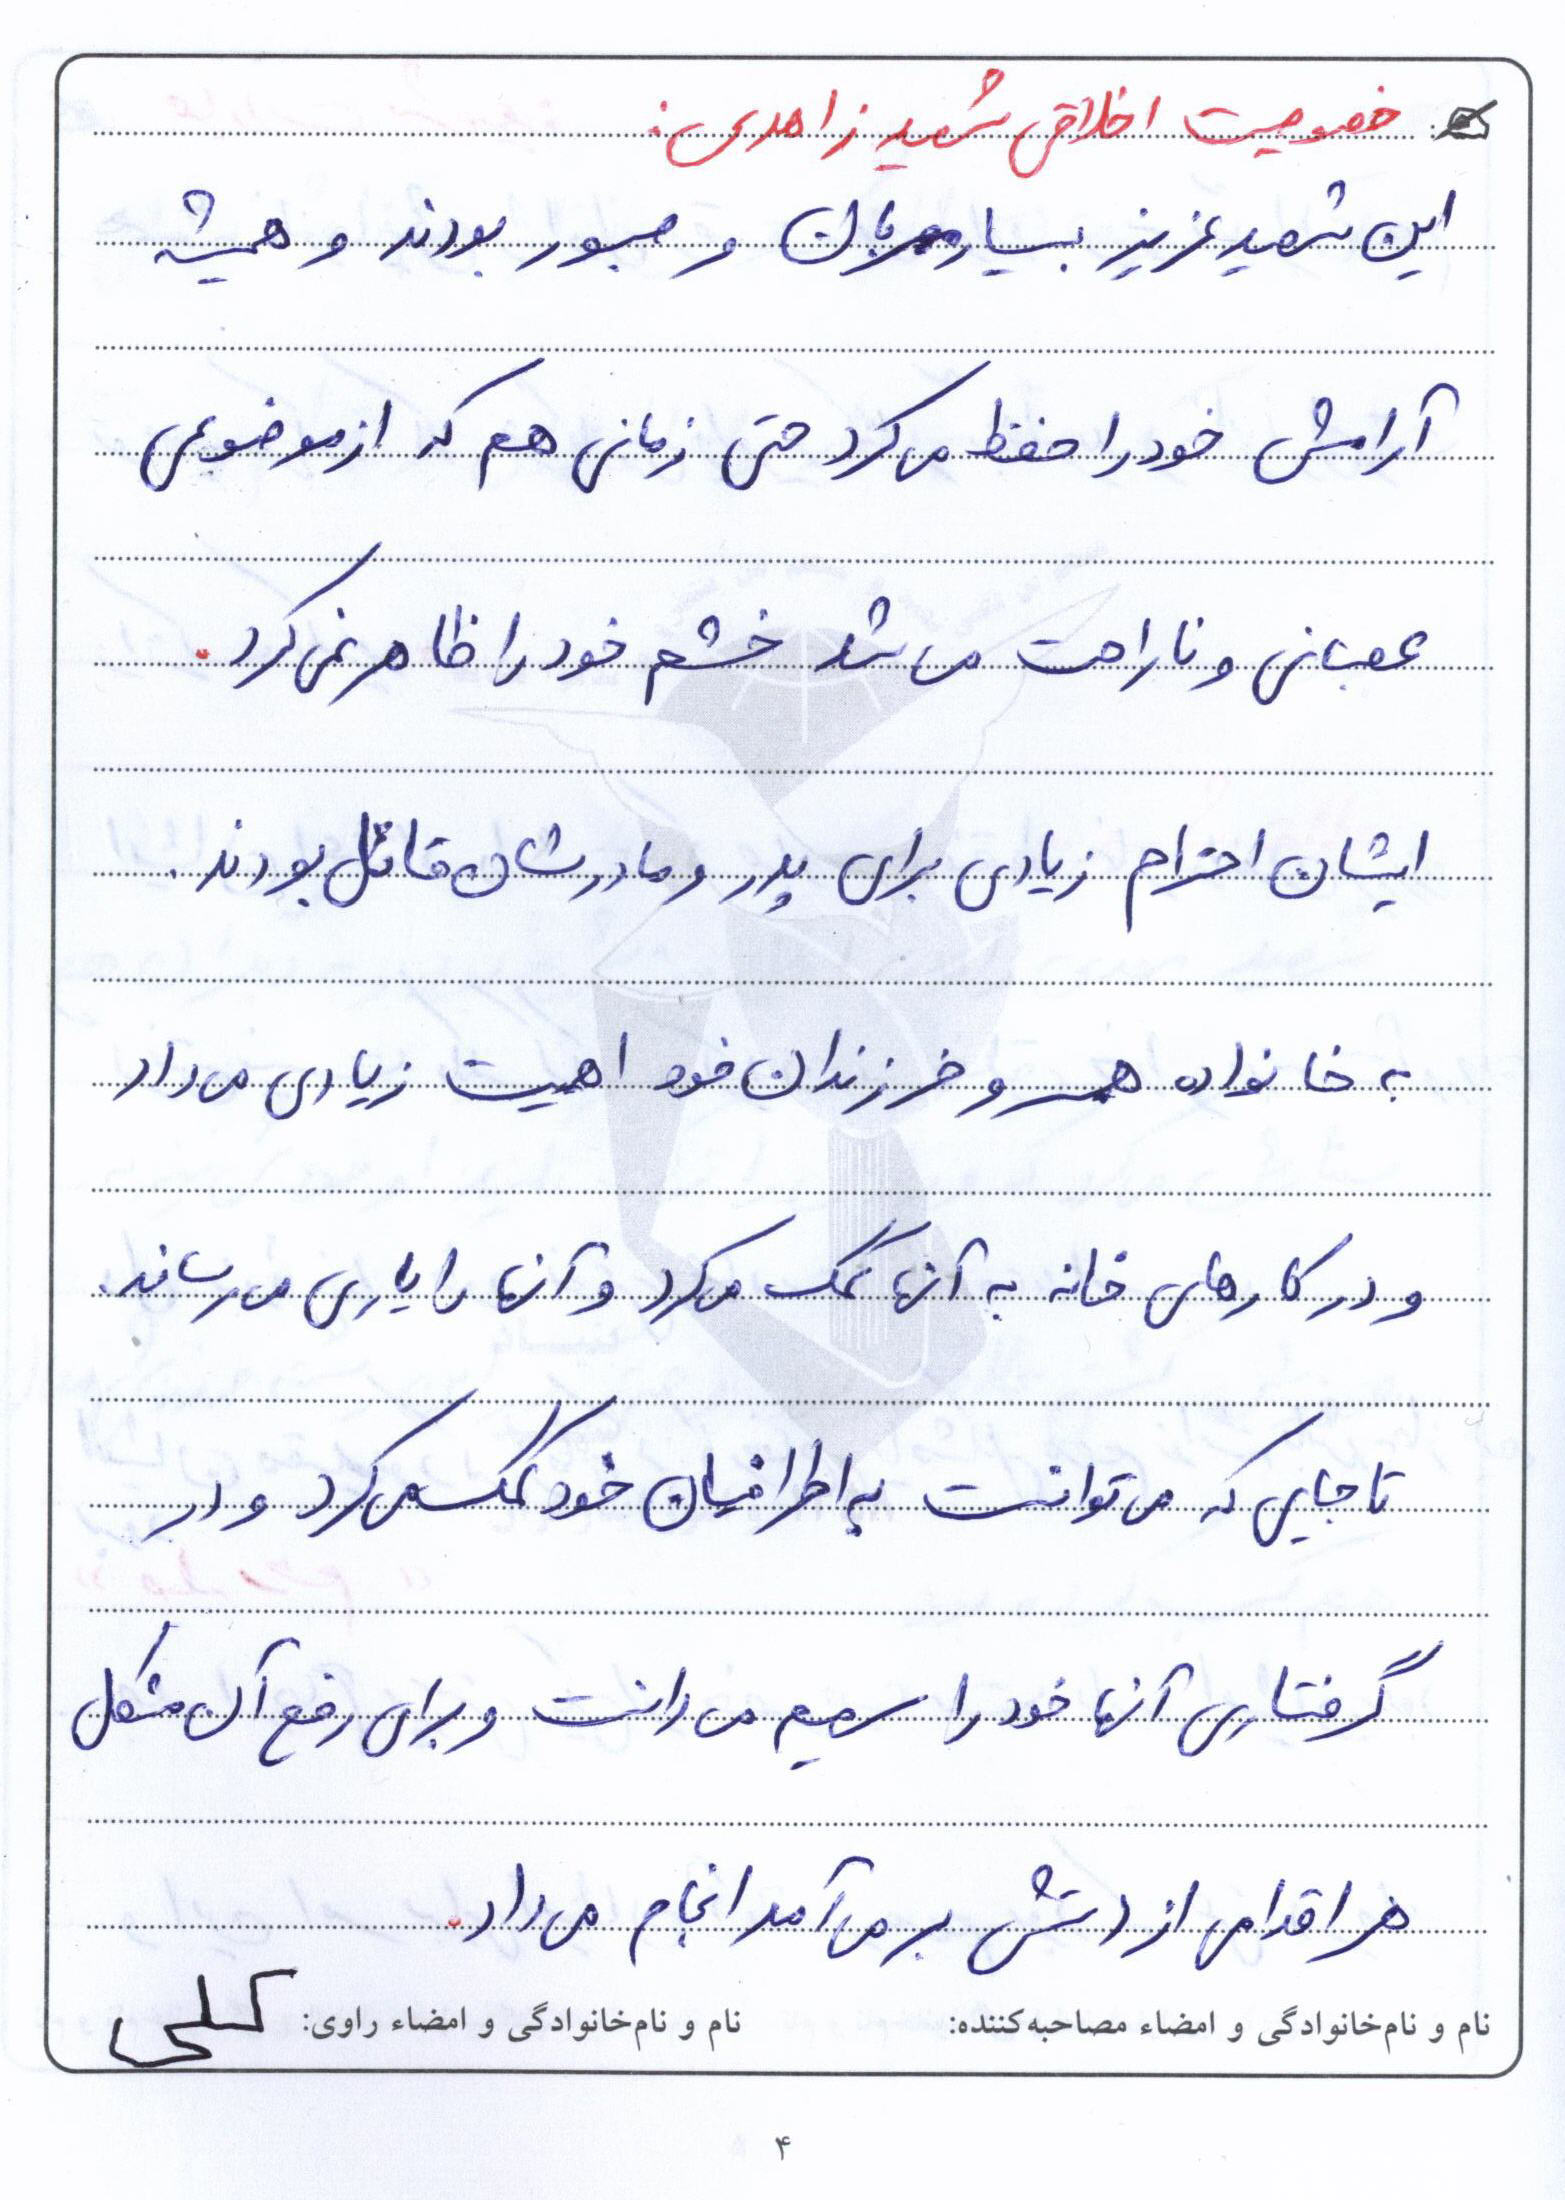 خصوصیت اخلاقی شهید زاهدی:
این شهید عزیز بسیار مهربان و صبور بودند و همیشه
آرامش خود را حفظ می‌کرد حتی زمانی هم که از موضوعی
عصبانی و ناراحت می‌شد خشم خود را ظاهر نمی‌کرد.
ایشان احترام زیادی برای پدر و مادرشان قائل بودند.
به خانواده همسر و فرزندان خود اهمیت زیادی می‌داد
و در کارهای خانه به آنها کمک می‌کرد و آنها را یاری می‌رساند.
تا جایی که می‌توانست به اطرافیان خود کمک می‌کرد و در
گرفتاری آنها خود را سهیم می‌دانست و برای رفع آن مشکل
هر اقدامی از دستش بر می‌آمد انجام می‌داد.
نام و نام‌خانوادگی و امضاء مصاحبه‌کننده: نام و نام‌خانوادگی و امضاء راوی:
۴